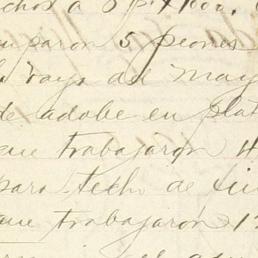 echos a 8 p. x 1000.
uparon 5 peones
la raya del May
de adobe en plat
que trabajaron 4
para techo de
que trabajaron 1